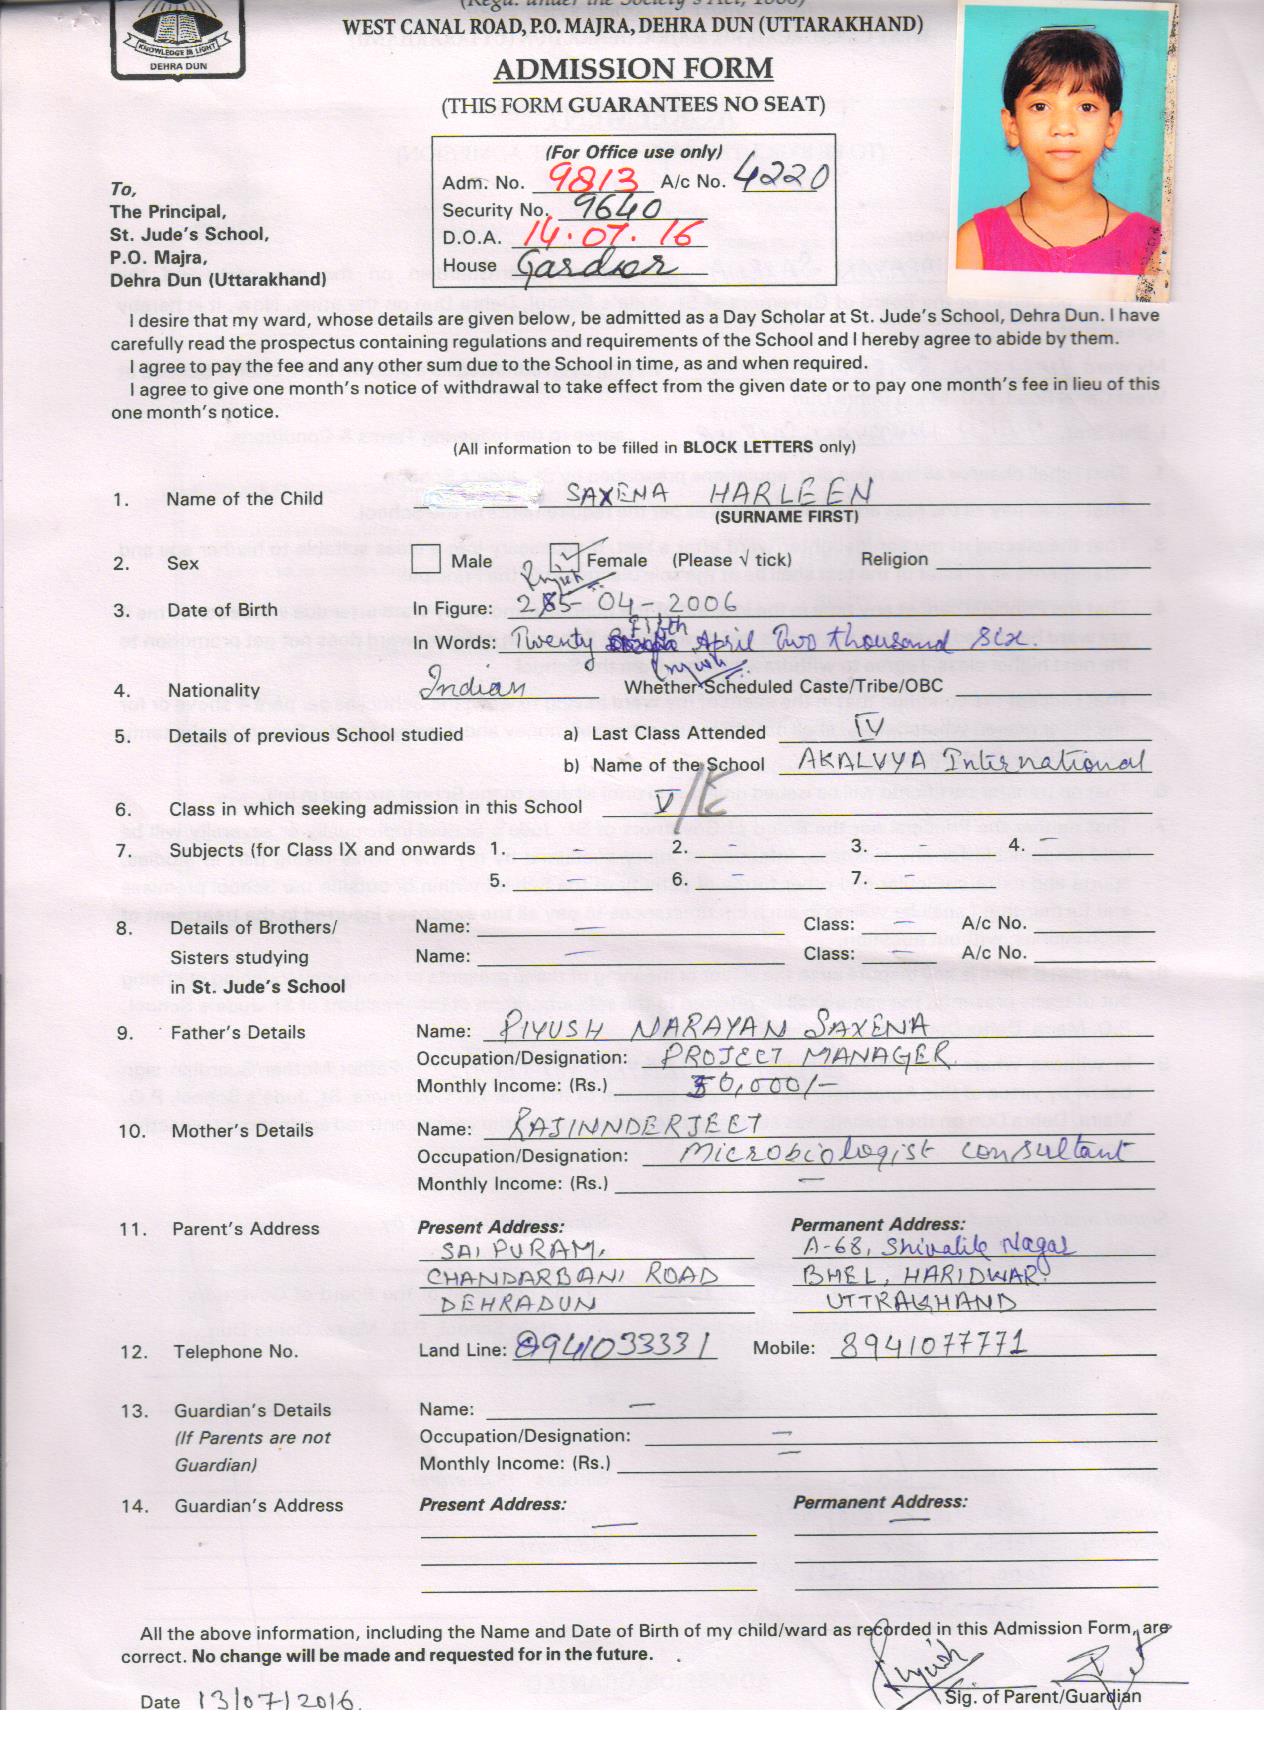 (Regd. under the Society's Act, 1860)
WEST CANAL ROAD, P.O. MAJRA, DEHRA DUN (UTTARAKHAND)
KNOWLEDGE IS LIGHT
DEHRA DUN
ADMISSION FORM
(THIS FORM GUARANTEES NO SEAT)
(For Office use only)
Adm. No. 9813 A/c No. 4220
Security No. 9640
D.O.A. 14.07.16
House
To,
The Principal,
St. Jude's School,
P.O. Majra,
Dehra Dun (Uttarakhand)
I desire that my ward, whose details are given below, be admitted as a Day Scholar at St. Jude's School, Dehra Dun. I have
carefully read the prospectus containing regulations and requirements of the School and I hereby agree to abide by them.
I agree to pay the fee and any other sum due to the School in time, as and when required.
I agree to give one month's notice of withdrawal to take effect from the given date or to pay one month's fee in lieu of this
one month's notice.
(All information to be filled in BLOCK LETTERS only)
1. Name of the Child SAXENA HARLEEN
(SURNAME FIRST)
2. Sex Male ✓ Female (Please √ tick) Religion
Piyush
3. Date of Birth In Figure: 25-04-2006
In Words: Twenty Fifth April Two thousand Six.
Piyush
4. Nationality Indian Whether Scheduled Caste/Tribe/OBC
5. Details of previous School studied a) Last Class Attended IV
b) Name of the School AKALVYA International
6. Class in which seeking admission in this School V/E
7. Subjects (for Class IX and onwards 1. - 2. - 3. - 4. -
5. - 6. - 7. -
8. Details of Brothers/ Name: - Class: - A/c No.
Sisters studying Name: - Class: - A/c No.
in St. Jude's School
9. Father's Details Name: PIYUSH NARAYAN SAXENA
Occupation/Designation: PROJECT MANAGER.
Monthly Income: (Rs.) 50,000/-
10. Mother's Details Name: RAJINNDERJEET
Occupation/Designation: Microbiologist consultant
Monthly Income: (Rs.) -
11. Parent's Address Present Address: Permanent Address:
SAI PURAM, A-68, Shivalik Nagar
CHANDARBANI ROAD BHEL, HARIDWAR
DEHRADUN UTTRAKHAND
12. Telephone No. Land Line: 8941033331 Mobile: 8941077771
13. Guardian's Details Name: -
(If Parents are not Occupation/Designation: -
Guardian) Monthly Income: (Rs.) -
14. Guardian's Address Present Address: - Permanent Address: -
All the above information, including the Name and Date of Birth of my child/ward as recorded in this Admission Form, are
correct. No change will be made and requested for in the future.
Piyush
Date 13/07/2016. Sig. of Parent/Guardian